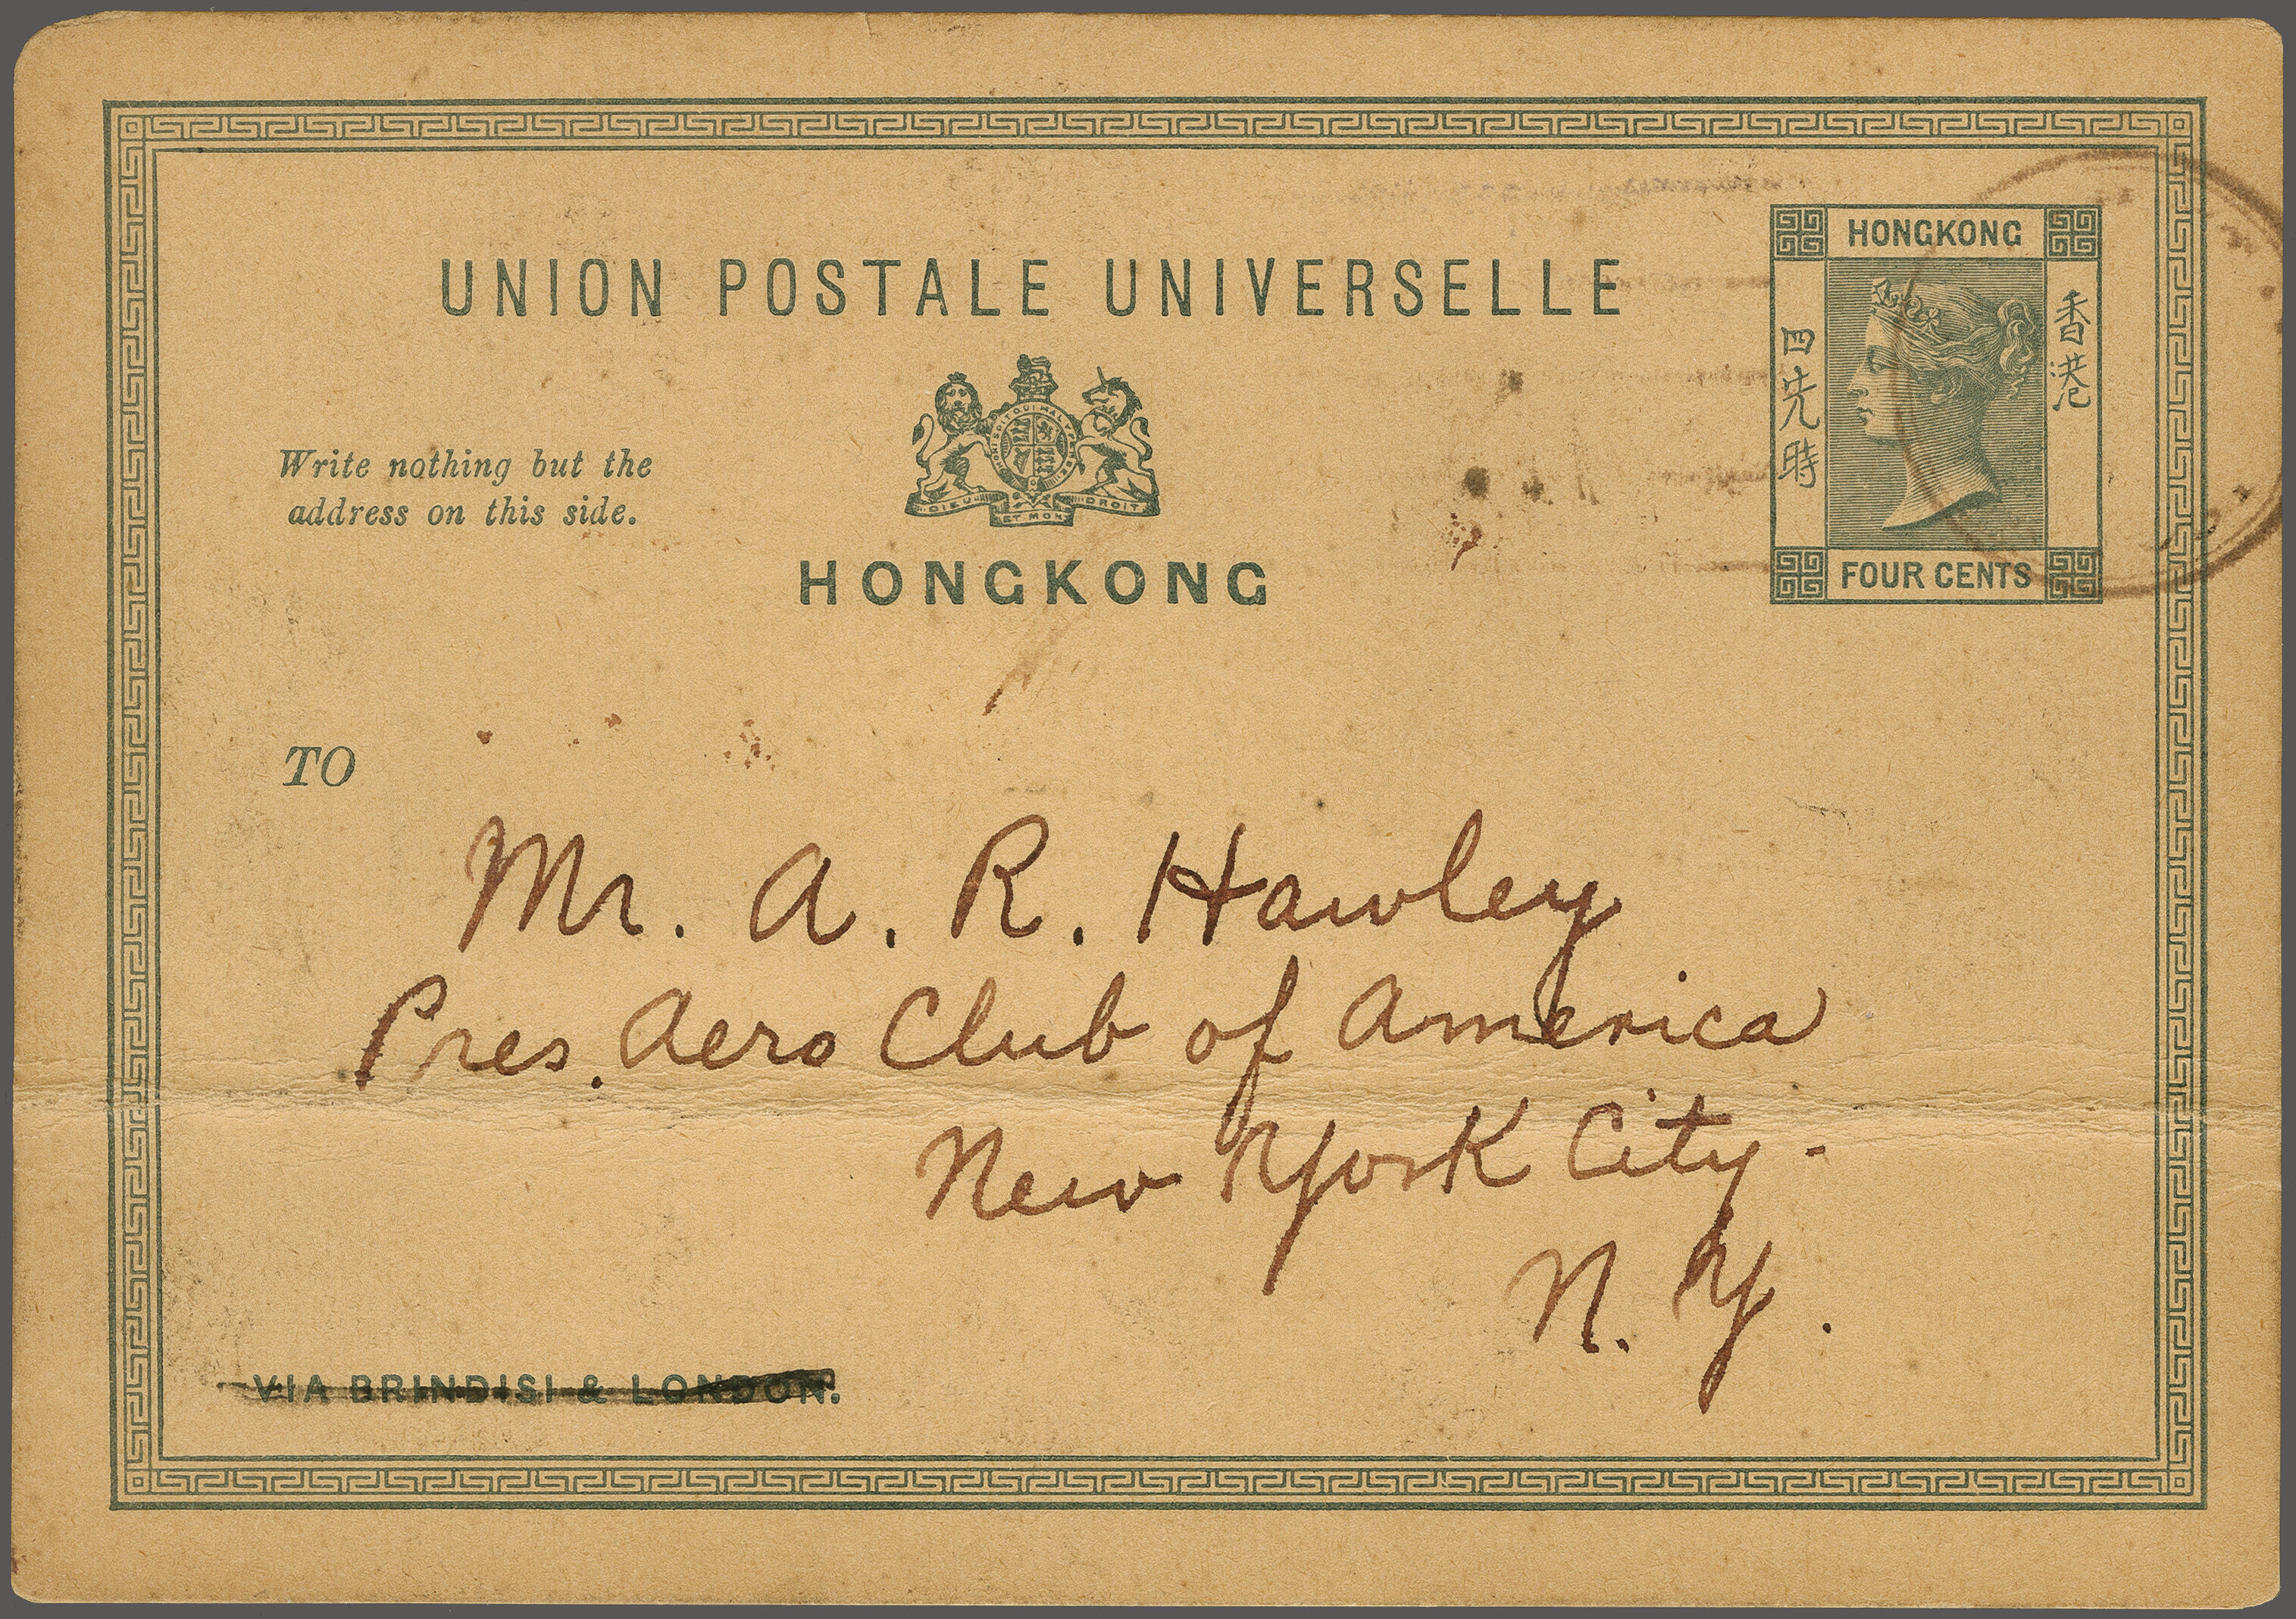 UNION POSTALE UNIVERSELLE
HONGKONG
香港
四先時
FOUR CENTS
HONI SOIT QUI MAL Y PENSE
DIEU ET MON DROIT
Write nothing but the
address on this side.
HONGKONG
TO
Mr. A. R. Hawley
Pres. Aero Club of America
New York City.
N. Y.
VIA BRINDISI & LONDON.